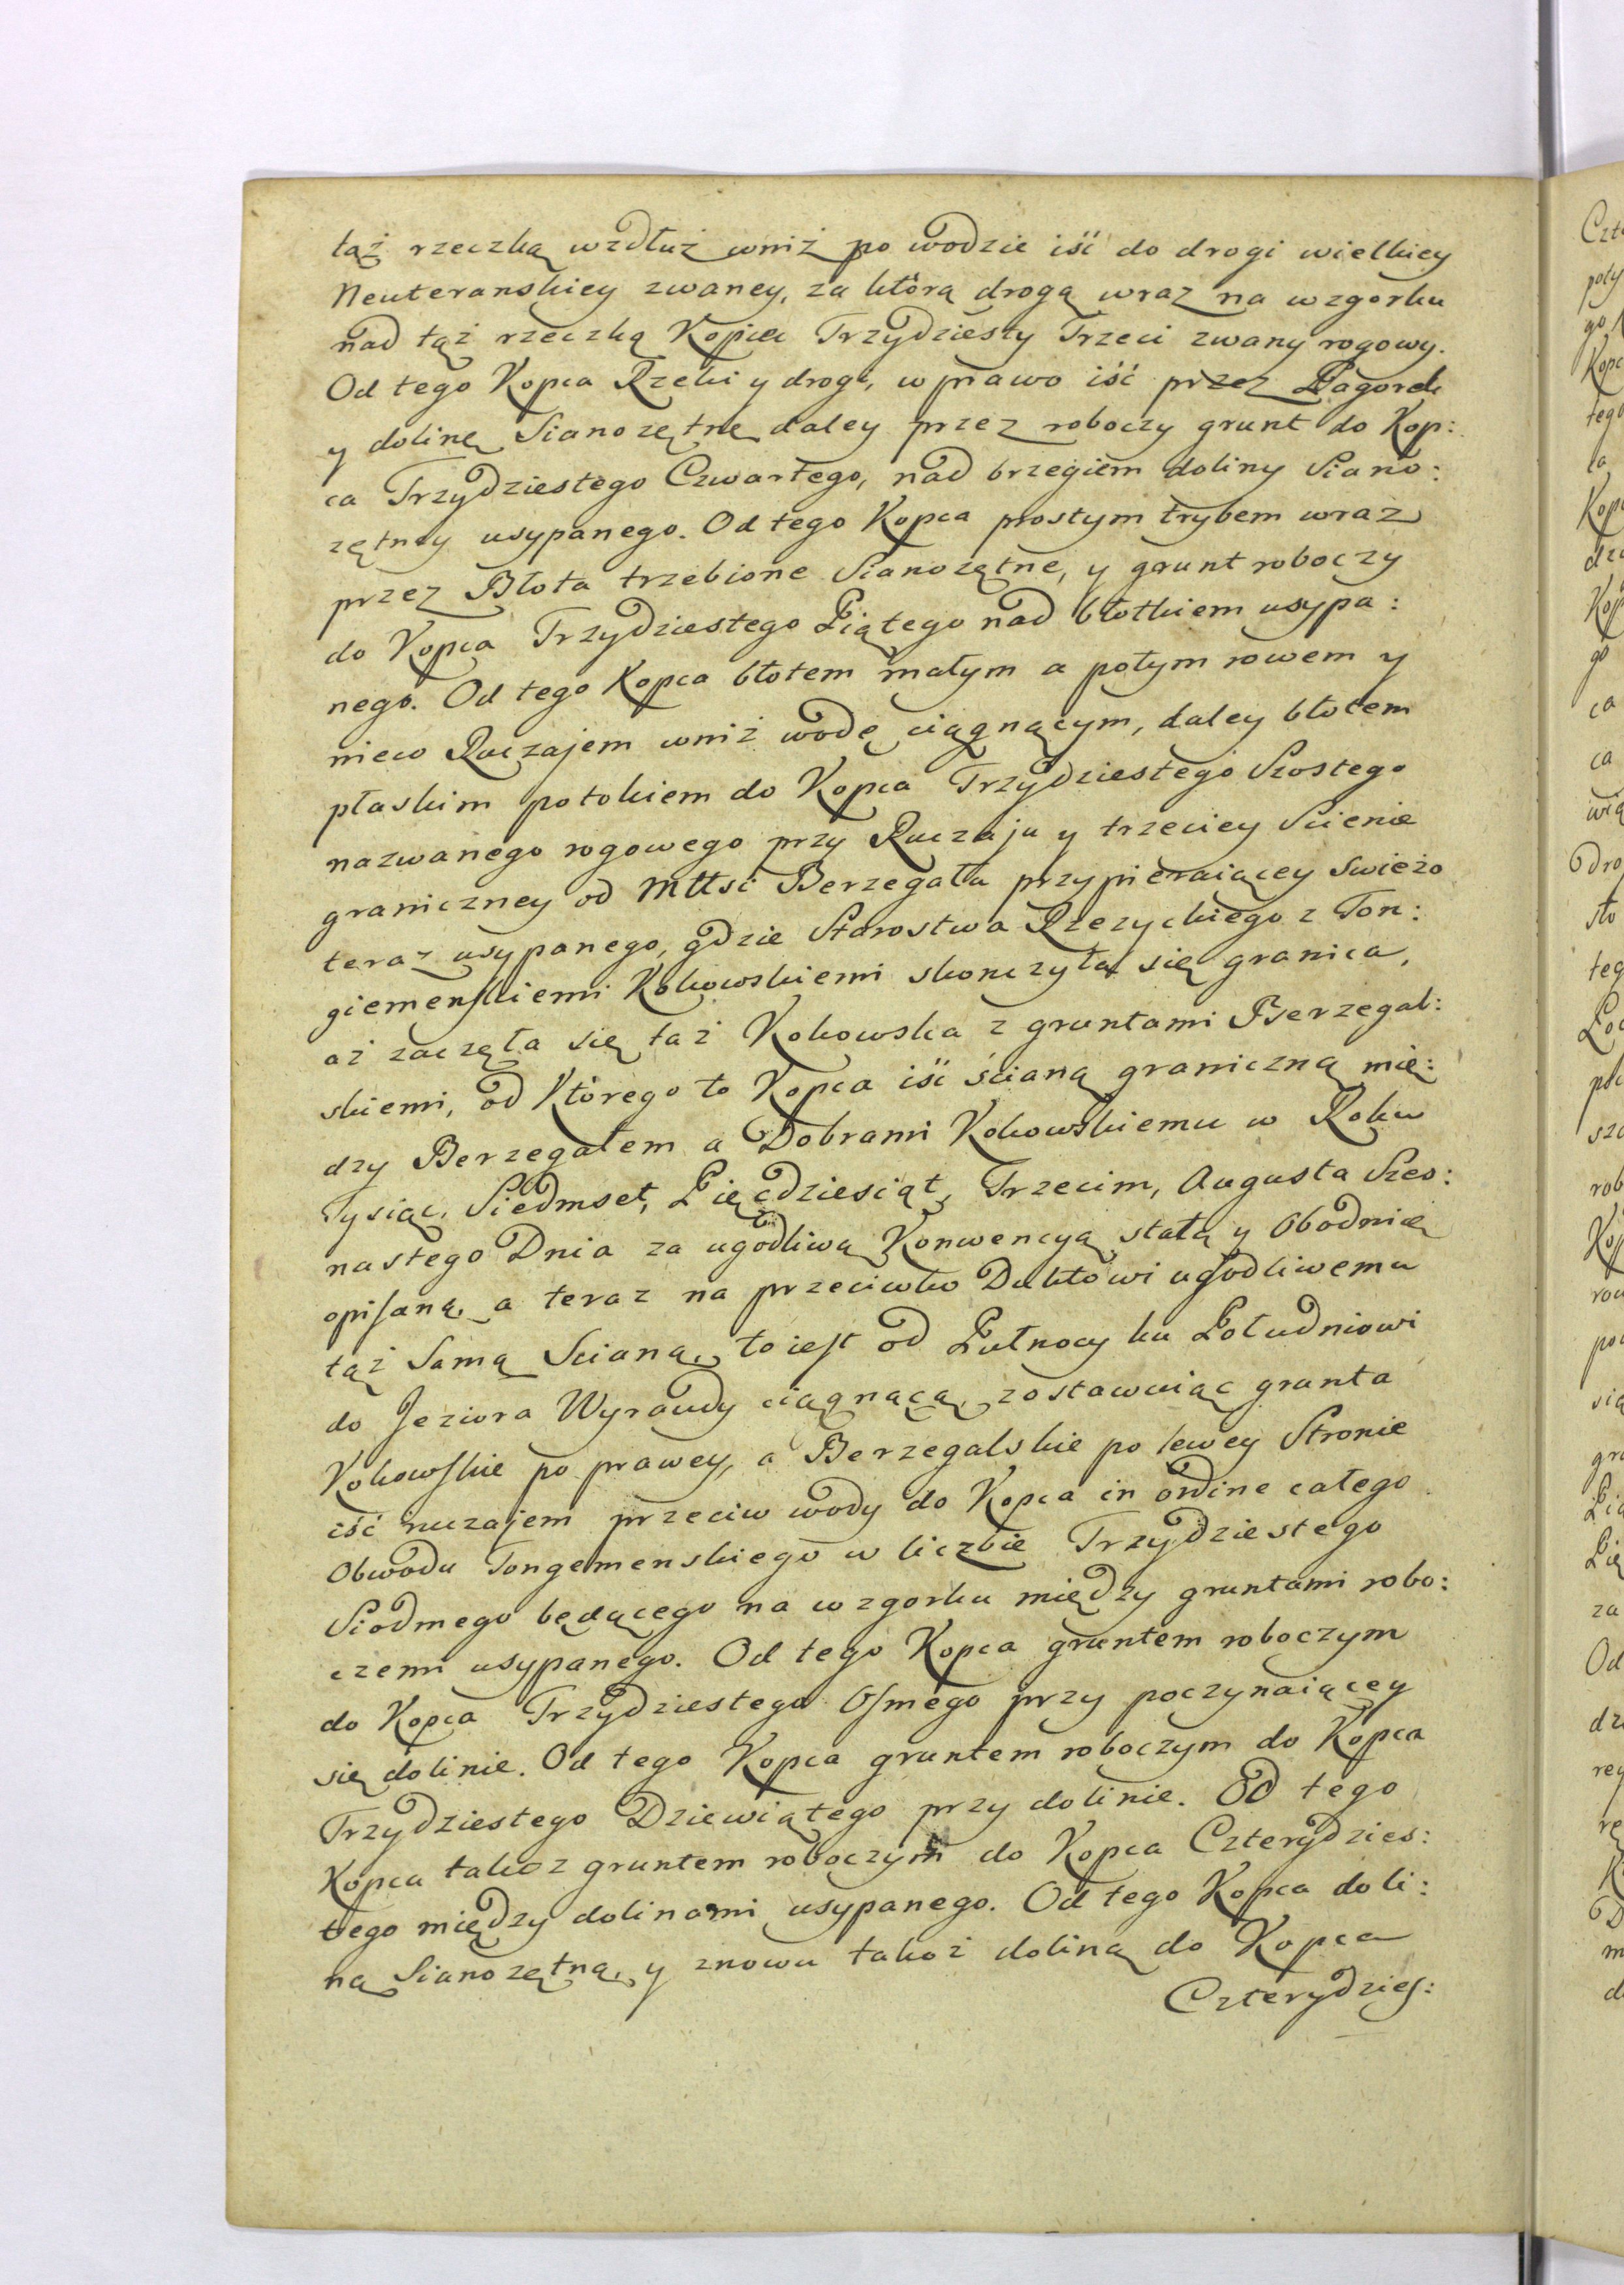 taż rzeczką wzdłuż wniż po wodzie iść do drogi wielkiey
Neuteranskiey zwaney, za którą drogą wraz na wzgorku
nad tąż rzeczką Kopiec Trzydziesty Trzeci zwany rogowy.
Od tego Kopca Rzeki y drogi, w prawo iść przez Pagorek
y dolinę Sianozętnę daley przez roboczy grunt do Kop:
ca Trzydziestego Czwartego, nad brzegiem doliny Siano:
zętney usypanego. Od tego Kopca prostym trybem wraz
przez Błota trzebione Sianozętne, y grunt roboczy
do Kopca Trzydziestego Piątego nad błotkiem usypa:
nego. Od tego Kopca błotem małym a połym rowem y
nieco Ruczajem wniż wodę ciągnącym, daley błotem
płaskim potokiem do Kopca Trzydziestego Szostego
nazwanego rogowego przy Ruczaju y trzeciey Scienie
graniczney od Mttsci Berzegała przypieraiącey Swieżo
teraz usypanego, gdzie Starostwa Rzezyckiego z Ton:
giemenskiemi Kokowskiemi skonczyła się granica,
aż zaczęła się taż Kokowska z gruntami Berzegal:
skiemi, od Którego to Kopca iść ścianą graniczną mię:
dzy Berzegałem a Dobrami Kokowskiemu w Roku
Tysiąc, Siedmset, Pięćdziesiąt, Trzecim, Augusta Szes:
nastego Dnia za ugodliwą Konwencyą stałą y Obodnią
opisaną, a teraz na przeciwko Duktowi ugodliwemu
tąż Samą Scianą, to iest od Pułnocy ku Południowi
do Jeziora Wyraudy ciągnącą, zostawuiąc grunta
Kokowskie po prawey, a Berzegalskie po lewey Stronie
iść ruczajem przeciw wody do Kopca in ordine całego
Obwodu Tongemenskiego w liczbie Trzydziestego
Siodmego będącego na wzgorku między gruntami robo:
czemi usypanego. Od tego Kopca gruntem roboczym
do Kopca Trzydziestego Osmego przy poczynaiącey
się dolinie. Od tego Kopca gruntem roboczym do Kopca
Trzydziestego Dziewiątego przy dolinie. Od tego
Kopca takoz gruntem roboczym do Kopca Czterydzies:
tego między dolinami usypanego. Od tego Kopca doli:
ną Sianozętną, y znowu takoż doliną do Kopca
Czterydzies: